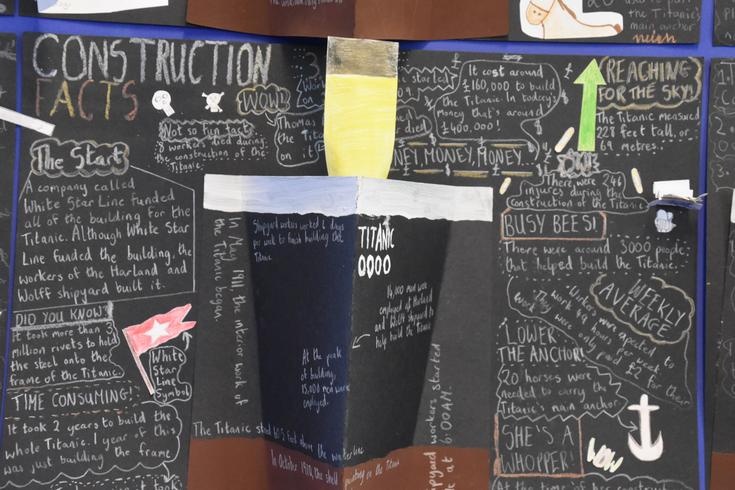 the Titanic's
main anchor
neigh
CONSTRUCTION
FACTS
WOW!
Not so fun fact
8 workers died during
the construction of the
Titanic.
Thomas
the
on it
The Start
A company called
White Star Line funded
all of the building for the
Titanic. Although White Star
Line funded the building, the
workers of the Harland and
Wolff shipyard built it.
DID YOU KNOW?
It took more than 3
million rivets to hold
the steel onto the
frame of the Titanic.
White
Star
Line
Symbol
TIME CONSUMING!
It took 2 years to build the
whole Titanic. 1 year of this
was just building the frame
In May 1911, the interior work of
the Titanic began.
Shipyard workers worked 6 days
per week to finish building the
Titanic
TITANIC
14,000 men were
employed at Harland
and Wolff shipyard to
help build the Titanic
At the peak
of building,
15,000 men were
employed.
The Titanic stood 60.5 feet above the water line
In October 1910, the shell painting on the Titanic
shipyard workers started
at 6:00AM.
started
09.
died
It cost around
£160,000 to build
the Titanic. In today's
money that's around
£400,000!
MONEY, MONEY, MONEY...
REACHING
FOR THE SKY!
The Titanic measured
228 feet tall, or
69 metres.
There were 246
injures during the
construction of the Titanic
BUSY BEES!
There were around 3000 people
that helped build the Titanic.
WEEKLY
AVERAGE
Workers were expected to
work 49 hours per week
They were only paid £2 for their
LOWER
THE ANCHOR!
20 horses were
needed to carry the
Titanic's main anchor
SHE'S A
WHOPPER!
WOW
At the time of her construct